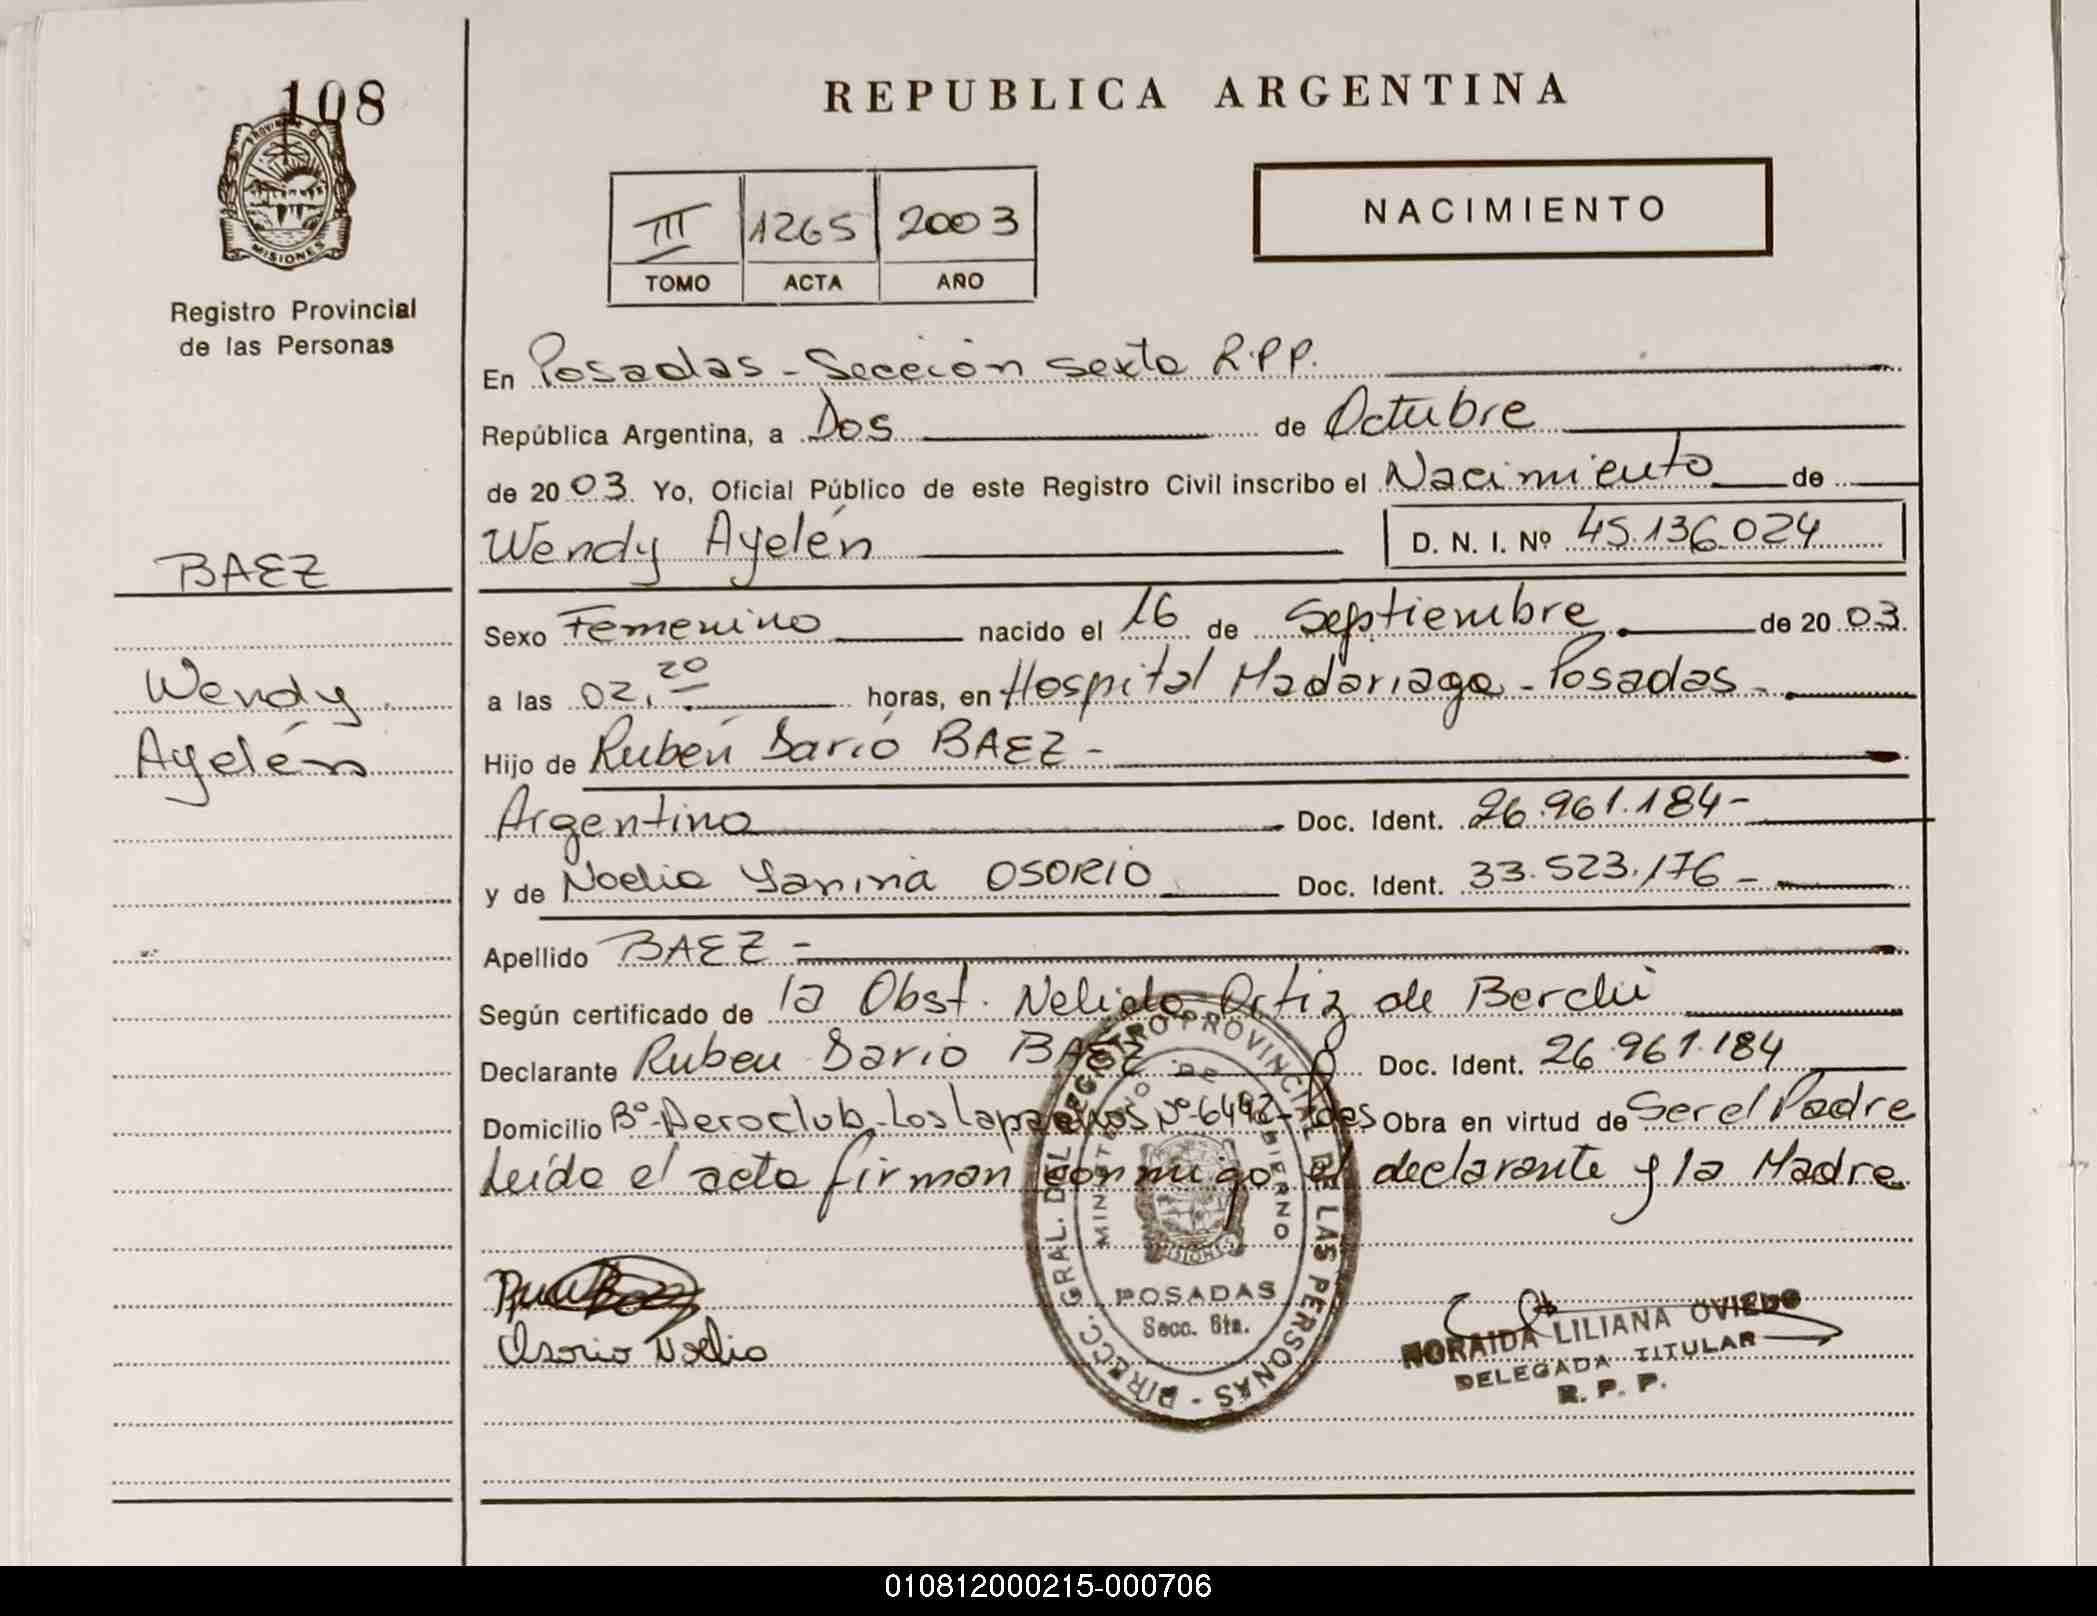 108
PROVINCIA DE
MISIONES
Registro Provincial
de las Personas
BAEZ
Wendy
Ayelén
REPUBLICA ARGENTINA
III 1265 2003
TOMO ACTA AÑO
NACIMIENTO
En Posadas - Sección sexta R.P.P.
República Argentina, a Dos de Octubre
de 2003 Yo, Oficial Público de este Registro Civil inscribo el Nacimiento de
Wendy Ayelén D. N. I. Nº 45.136.024
Sexo Femenino nacido el 16 de Septiembre de 2003.
a las 02,20 horas, en Hospital Madariaga - Posadas -
Hijo de Rubén Darío BAEZ -
Argentino Doc. Ident. 26.961.184-
y de Noelia Yanina OSORIO Doc. Ident. 33.523.176 -
Apellido BAEZ -
Según certificado de la Obst. Nelida Ortiz de
Declarante Ruben Dario BAEZ Doc. Ident. 26.961.184
Domicilio Bº Aeroclub - Los Lapachos Nº 6442 - Pdas Obra en virtud de Ser el Padre
Leída el acta firman conmigo el declarante y la Madre
DIRECC. GRAL. DEL REGISTRO PROVINCIAL DE LAS PERSONAS -
MINISTERIO DE GOBIERNO
MISIONES
POSADAS
Secc. 6ta.
Osorio Noelia
NORAIDA LILIANA OVIEDO
DELEGADA TITULAR
R. P. P.
010812000215-000706